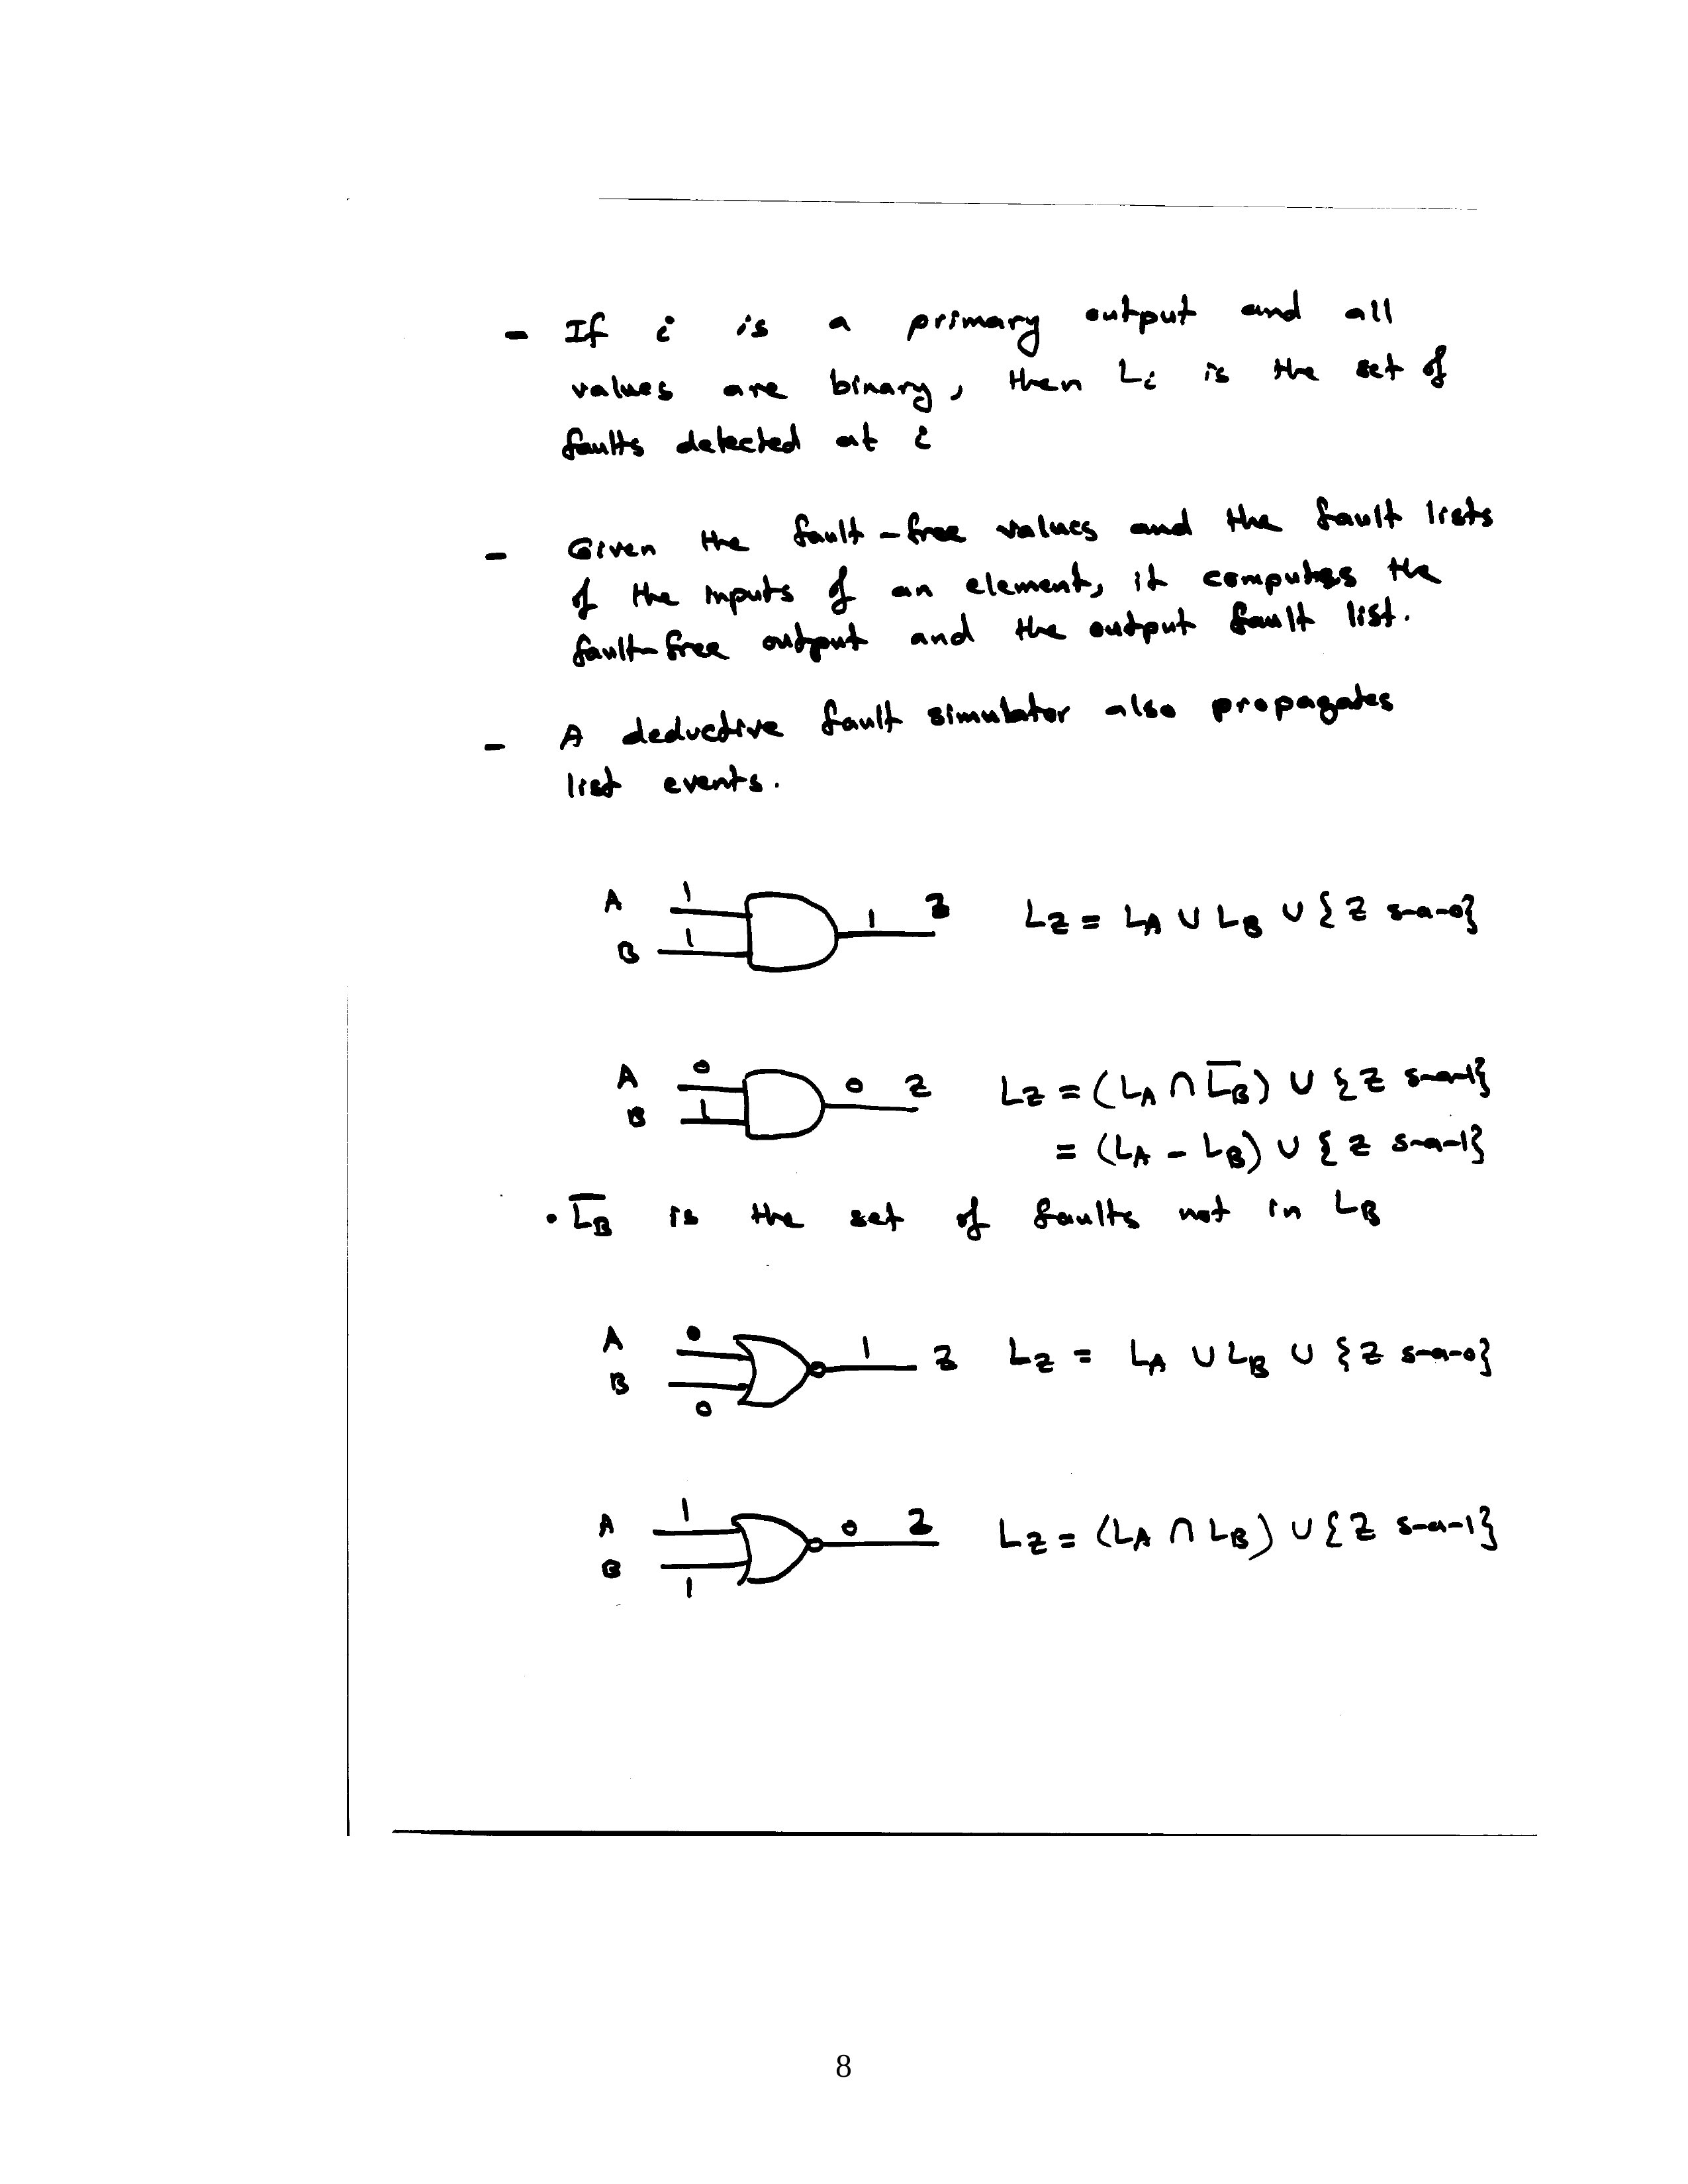 - If i is a primary output and all
values are binary, then Li is the set of
faults detected at i
- Given the fault-free values and the fault lists
of the inputs of an element, it computes the
fault-free output and the output fault list.
- A deductive fault simulator also propagates
list events.
A 1
B 1
1 Z
LZ = LA ∪ LB ∪ {Z s-a-0}
A 0
B 1
0 Z
LZ = (LA ∩ L̅B̅) ∪ {Z s-a-1}
= (LA - LB) ∪ {Z s-a-1}
• L̅B̅ is the set of faults not in LB
A 0
B 0
1 Z
LZ = LA ∪ LB ∪ {Z s-a-0}
A 1
B 1
0 Z
LZ = (LA ∩ LB) ∪ {Z s-a-1}
8